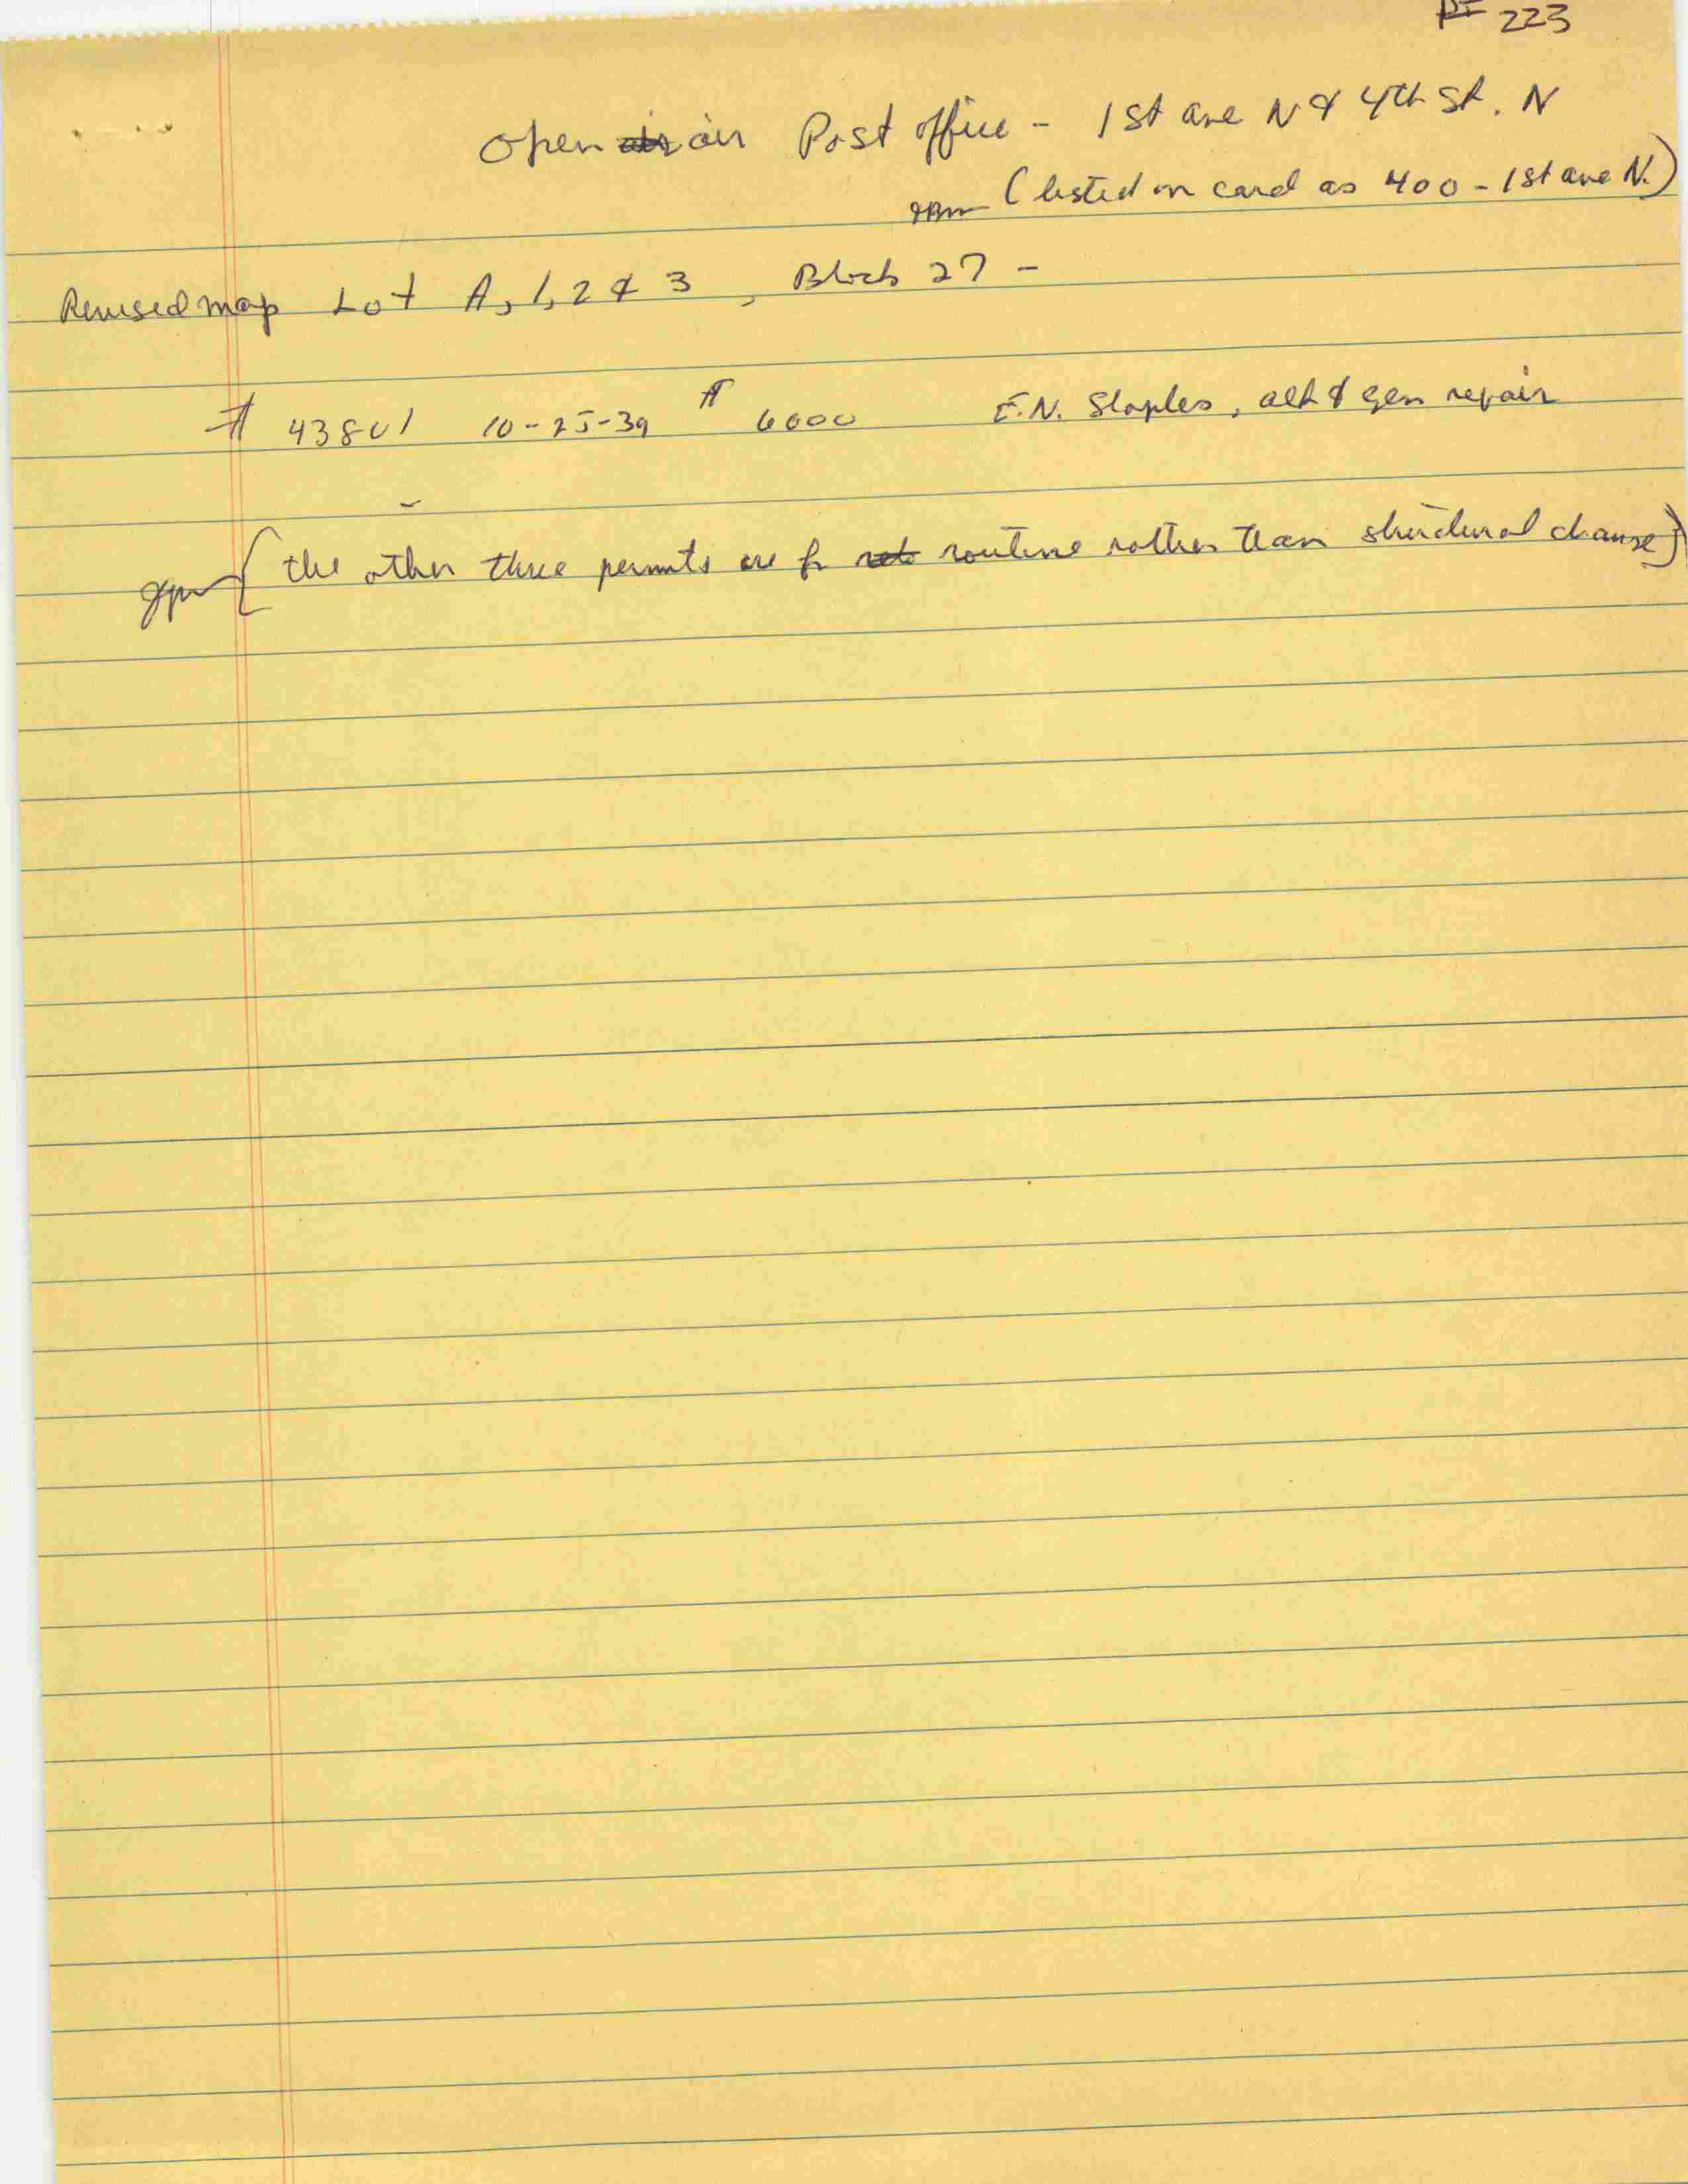 PI 223
Open air Post office - 1st ave N & 4th St. N
(listed on card as 400 - 1st ave N.)
Revised map Lot A, 1, 2 & 3, Block 27 -
# 43801 10-25-39 # 6000 E.N. Staples, alt & gen repair
(the other three permits are for routine rather than structural change)